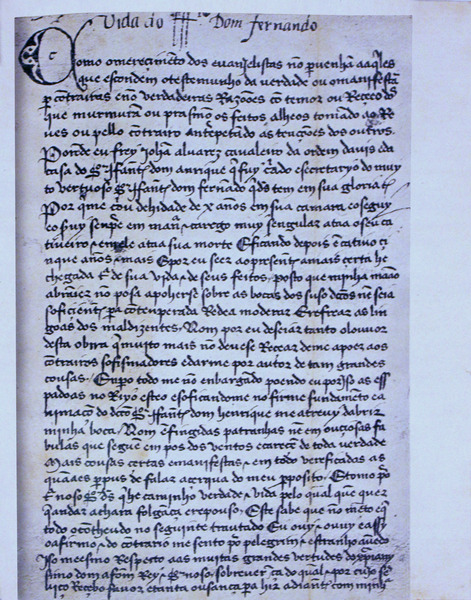 Vida do Iffte Dom fernando
Como o mereciméto dos euangelistas nõ peruenha aaqles
que escondem o testemunho da verdade ou o manifestã
per contrairas e nõ verdadeiras Razoões
que murmurã ou prasmõ os feitos alheos tomãdo ao Re
ues ou pello cõtrairo antepetãdo as tenções dos outros.
Porende eu frey Johã aluarez caualeiro da ordem dauis e da
casa do Sor Iffante dom anrique q fuy criado e secretaryo do muy
to vertuoso Sor Iffante dom fernãdo q ds tem em sua gloria
Por que eu de hidade de x anos em sua camara
e o seruy senpre em carrego muy sengular ataa o seu ca
tiueiro e em ele ataa sua morte E ficando depois catiuo ci
nque años e mais E por eu seer ao presente a mais certa he
chegada de sua vida e de seus feitos, posto que minha mão
nõ posa apoherse sobre as bocas dos suso dctos né seia
soficiente pera cõ temperada Redea moderar E refrear as lin
goas dos maldizentes. Nom por eu deseiar tanto o louuor
desta obra quanto mais nõ deuese Recear de me apoer aos
cõtrairos sofismadores e darme por autor de tam grandes
cousas. Enpo todo me nõ enbargãdo poendo eu as esp
padoas no Riyo esteo esoficandome no firme fundamento
do dcto Sor Iffante dom henrique me atreuy dabrir
minha boca, Nom é fingidas patranhas né em ouciosas fa
bulas que seguem em pos dos ventos e carecé de toda verdade
Mais cousas certas e manifestas e em todo vereficadas as
quaaes perpus de falar acerqua do meu preposito. E tomo por
noso Sor ds que he caminho verdade e vida pelo qual que quer
que andar achara folgãça e repouso. Este sabe que nõ mento
todo o conteheudo no seguinte trautado Eu ouvy e assy
o afirmo e do contrario me sento por pelegrin e estranho
Iso meesmo Resperto aas muitas grandes vertudes do
simo dom afom Rey e Sor noso, sobre uerça do qual e por
uiço Recebo fauor e tanta ousança pera hir adiante com minha